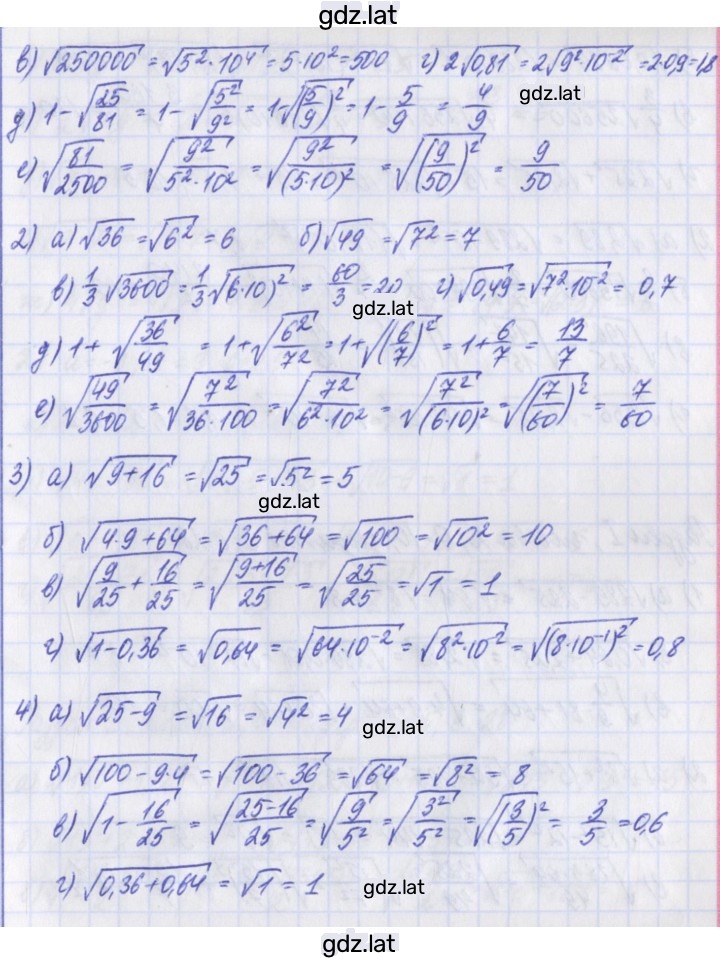 gdz.lat
в) √250000 = √5²·10⁴ = 5·10² = 500 г) 2√0,81 = 2√9²·10⁻² = 2·0,9 = 1,8
gdz.lat
д) 1 - √25/81 = 1 - √5²/9² = 1 - √(5/9)² = 1 - 5/9 = 4/9
е) √81/2500 = √9²/5²·10² = √9²/(5·10)² = √(9/50)² = 9/50
2) а) √36 = √6² = 6 б) √49 = √7² = 7
в) 1/3 √3600 = 1/3 √(6·10)² = 60/3 = 20 г) √0,49 = √7²·10⁻² = 0,7
gdz.lat
д) 1 + √36/49 = 1 + √6²/7² = 1 + √(6/7)² = 1 + 6/7 = 13/7
е) √49/3600 = √7²/36·100 = √7²/6²·10² = √7²/(6·10)² = √(7/60)² = 7/60
3) а) √9+16 = √25 = √5² = 5
gdz.lat
б) √4·9+64 = √36+64 = √100 = √10² = 10
в) √9/25 + 16/25 = √9+16/25 = √25/25 = √1 = 1
г) √1-0,36 = √0,64 = √64·10⁻² = √8²·10⁻² = √(8·10⁻¹)² = 0,8
4) а) √25-9 = √16 = √4² = 4
gdz.lat
б) √100-9·4 = √100-36 = √64 = √8² = 8
в) √1 - 16/25 = √25-16/25 = √9/5² = √3²/5² = √(3/5)² = 3/5 = 0,6
г) √0,36+0,64 = √1 = 1
gdz.lat
gdz.lat